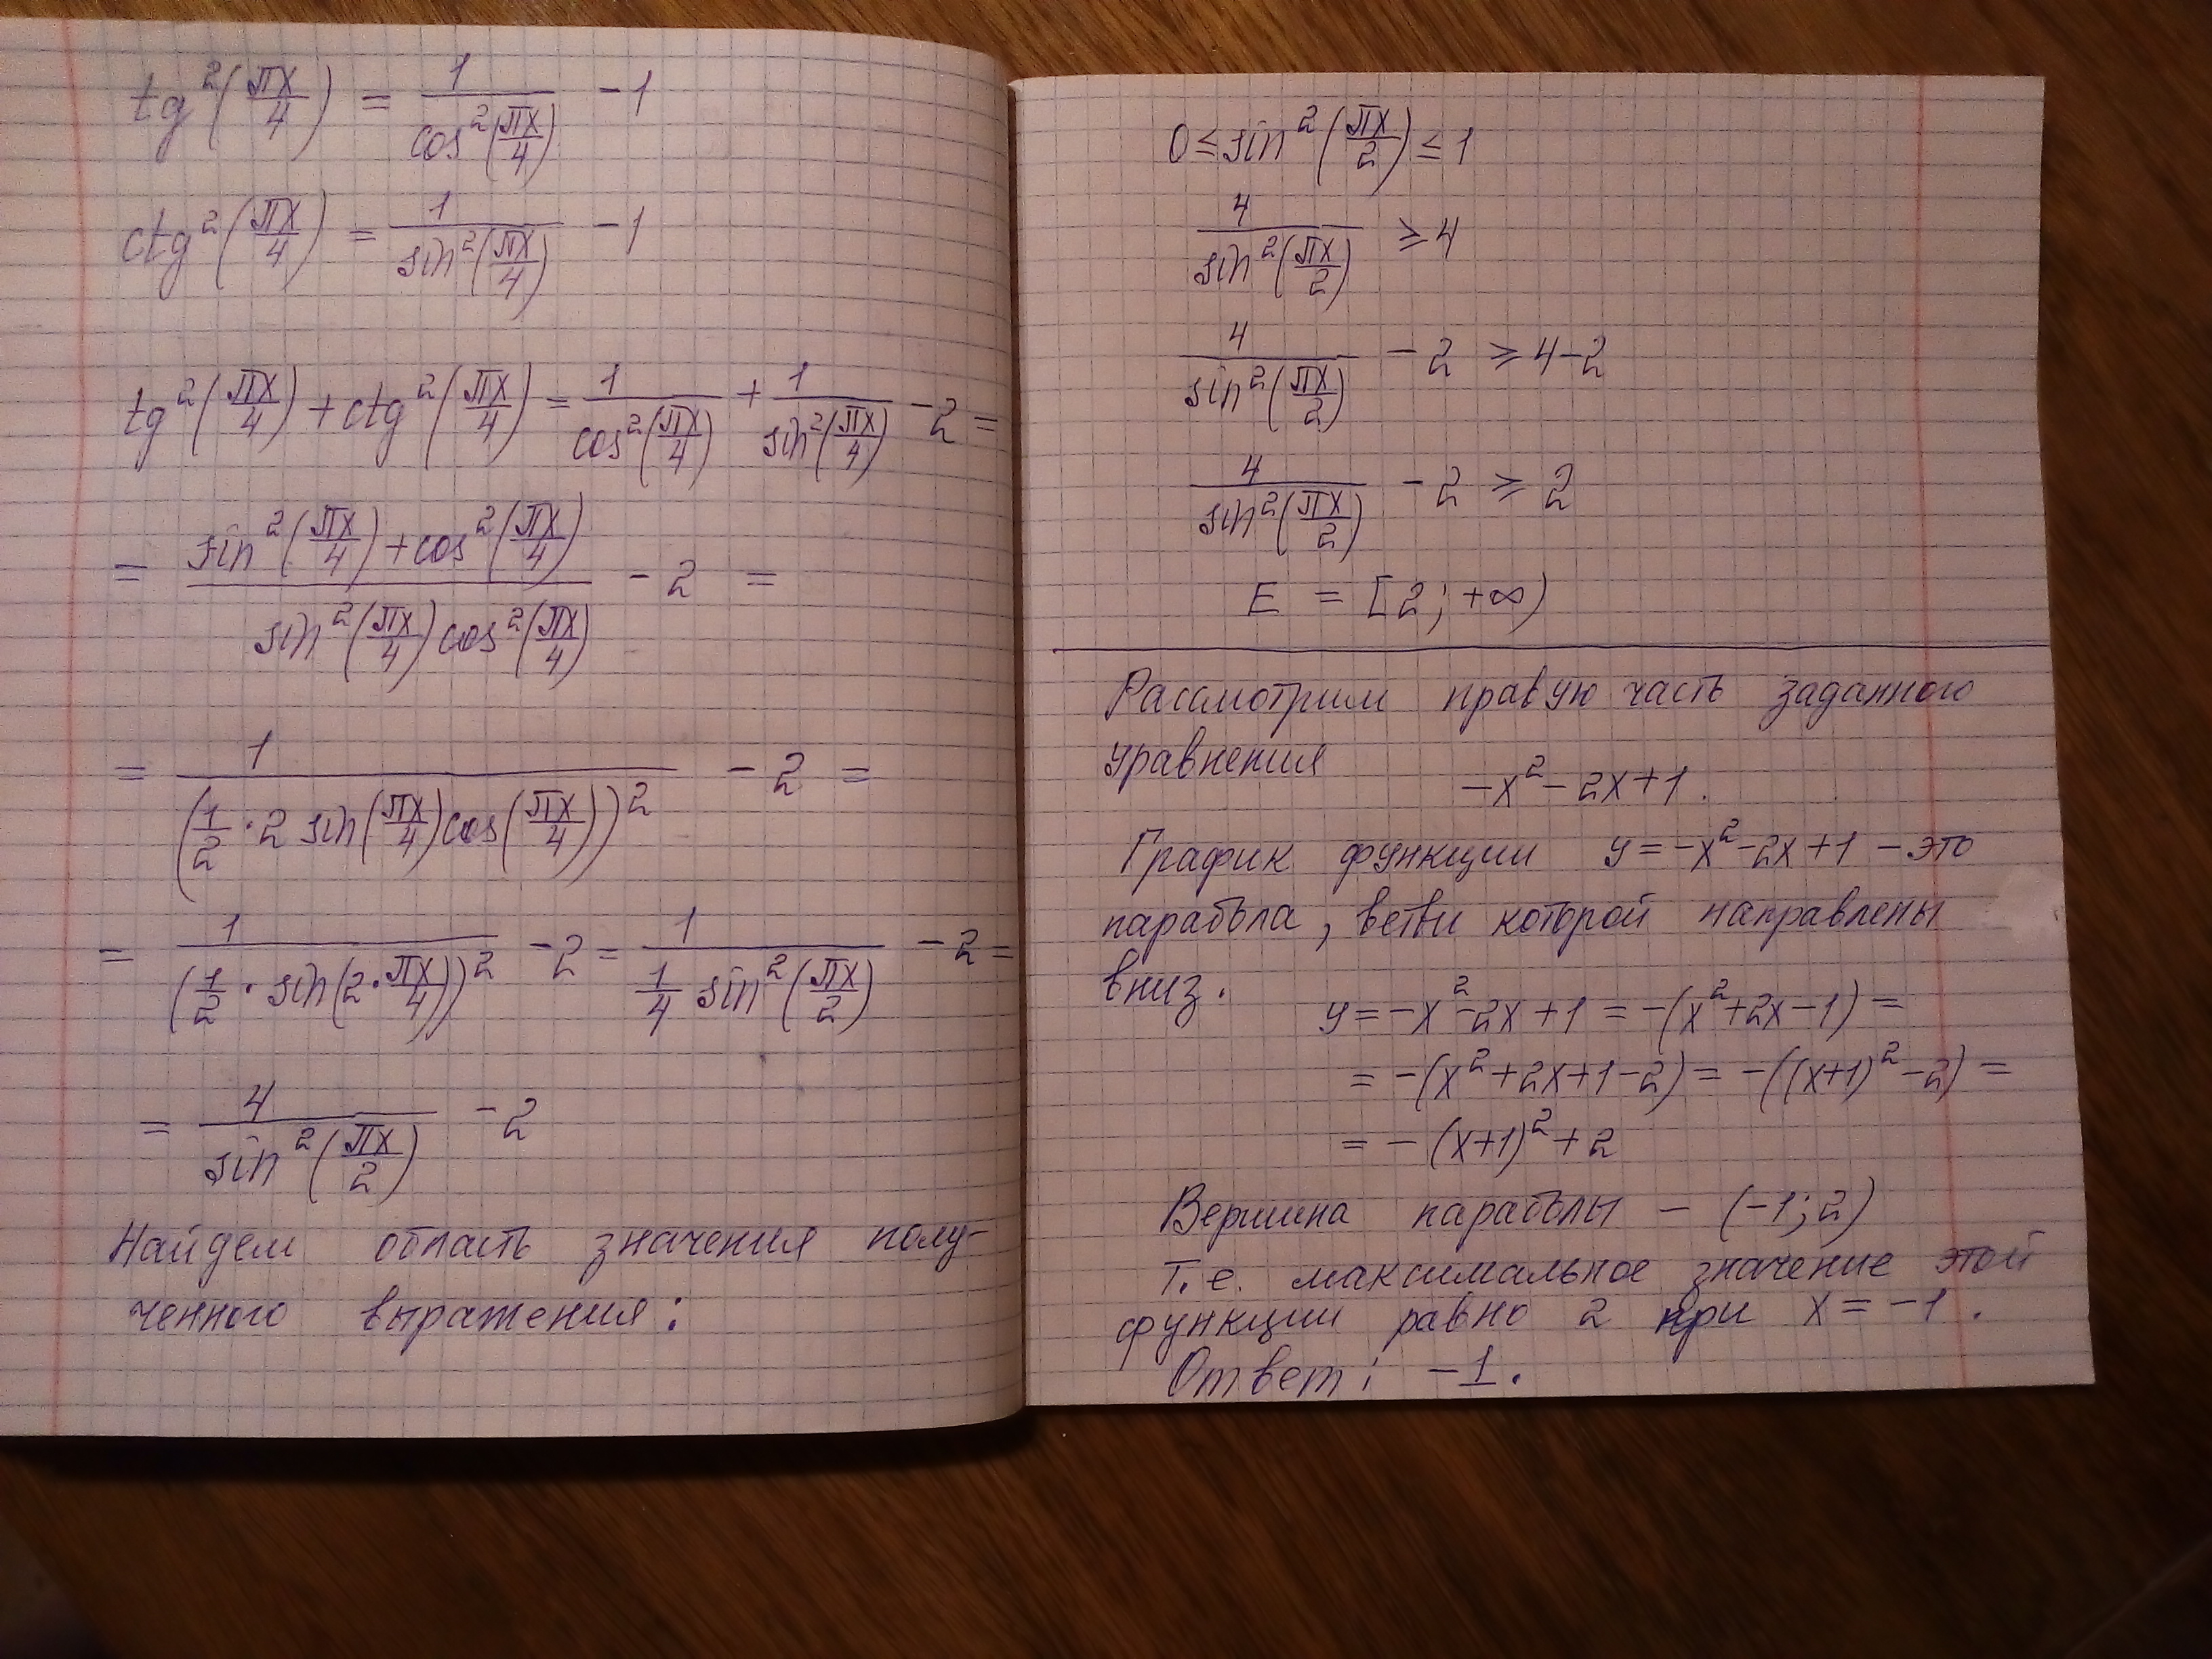 tg²(πx/4) = 1/cos²(πx/4) - 1
ctg²(πx/4) = 1/sin²(πx/4) - 1
tg²(πx/4) + ctg²(πx/4) = 1/cos²(πx/4) + 1/sin²(πx/4) - 2 =
= (sin²(πx/4) + cos²(πx/4))/(sin²(πx/4) cos²(πx/4)) - 2 =
= 1/(1/2 · 2 sin(πx/4) cos(πx/4))² - 2 =
= 1/(1/2 · sin(2 · πx/4))² - 2 = 1/(1/4 sin²(πx/2)) - 2 =
= 4/sin²(πx/2) - 2
Найдем область значения полу-
ченного выражения:
0 ≤ sin²(πx/2) ≤ 1
4/sin²(πx/2) ≥ 4
4/sin²(πx/2) - 2 ≥ 4-2
4/sin²(πx/2) - 2 ≥ 2
E = [2; +∞)
Рассмотрим правую часть заданного
уравнения
-x² - 2x + 1.
График функции y = -x² - 2x + 1 - это
парабола, ветви которой направлены
вниз.
y = -x² - 2x + 1 = -(x² + 2x - 1) =
= -(x² + 2x + 1 - 2) = -((x+1)² - 2) =
= -(x+1)² + 2
Вершина параболы - (-1; 2)
Т.е. максимальное значение этой
функции равно 2 при x = -1.
Ответ: -1.